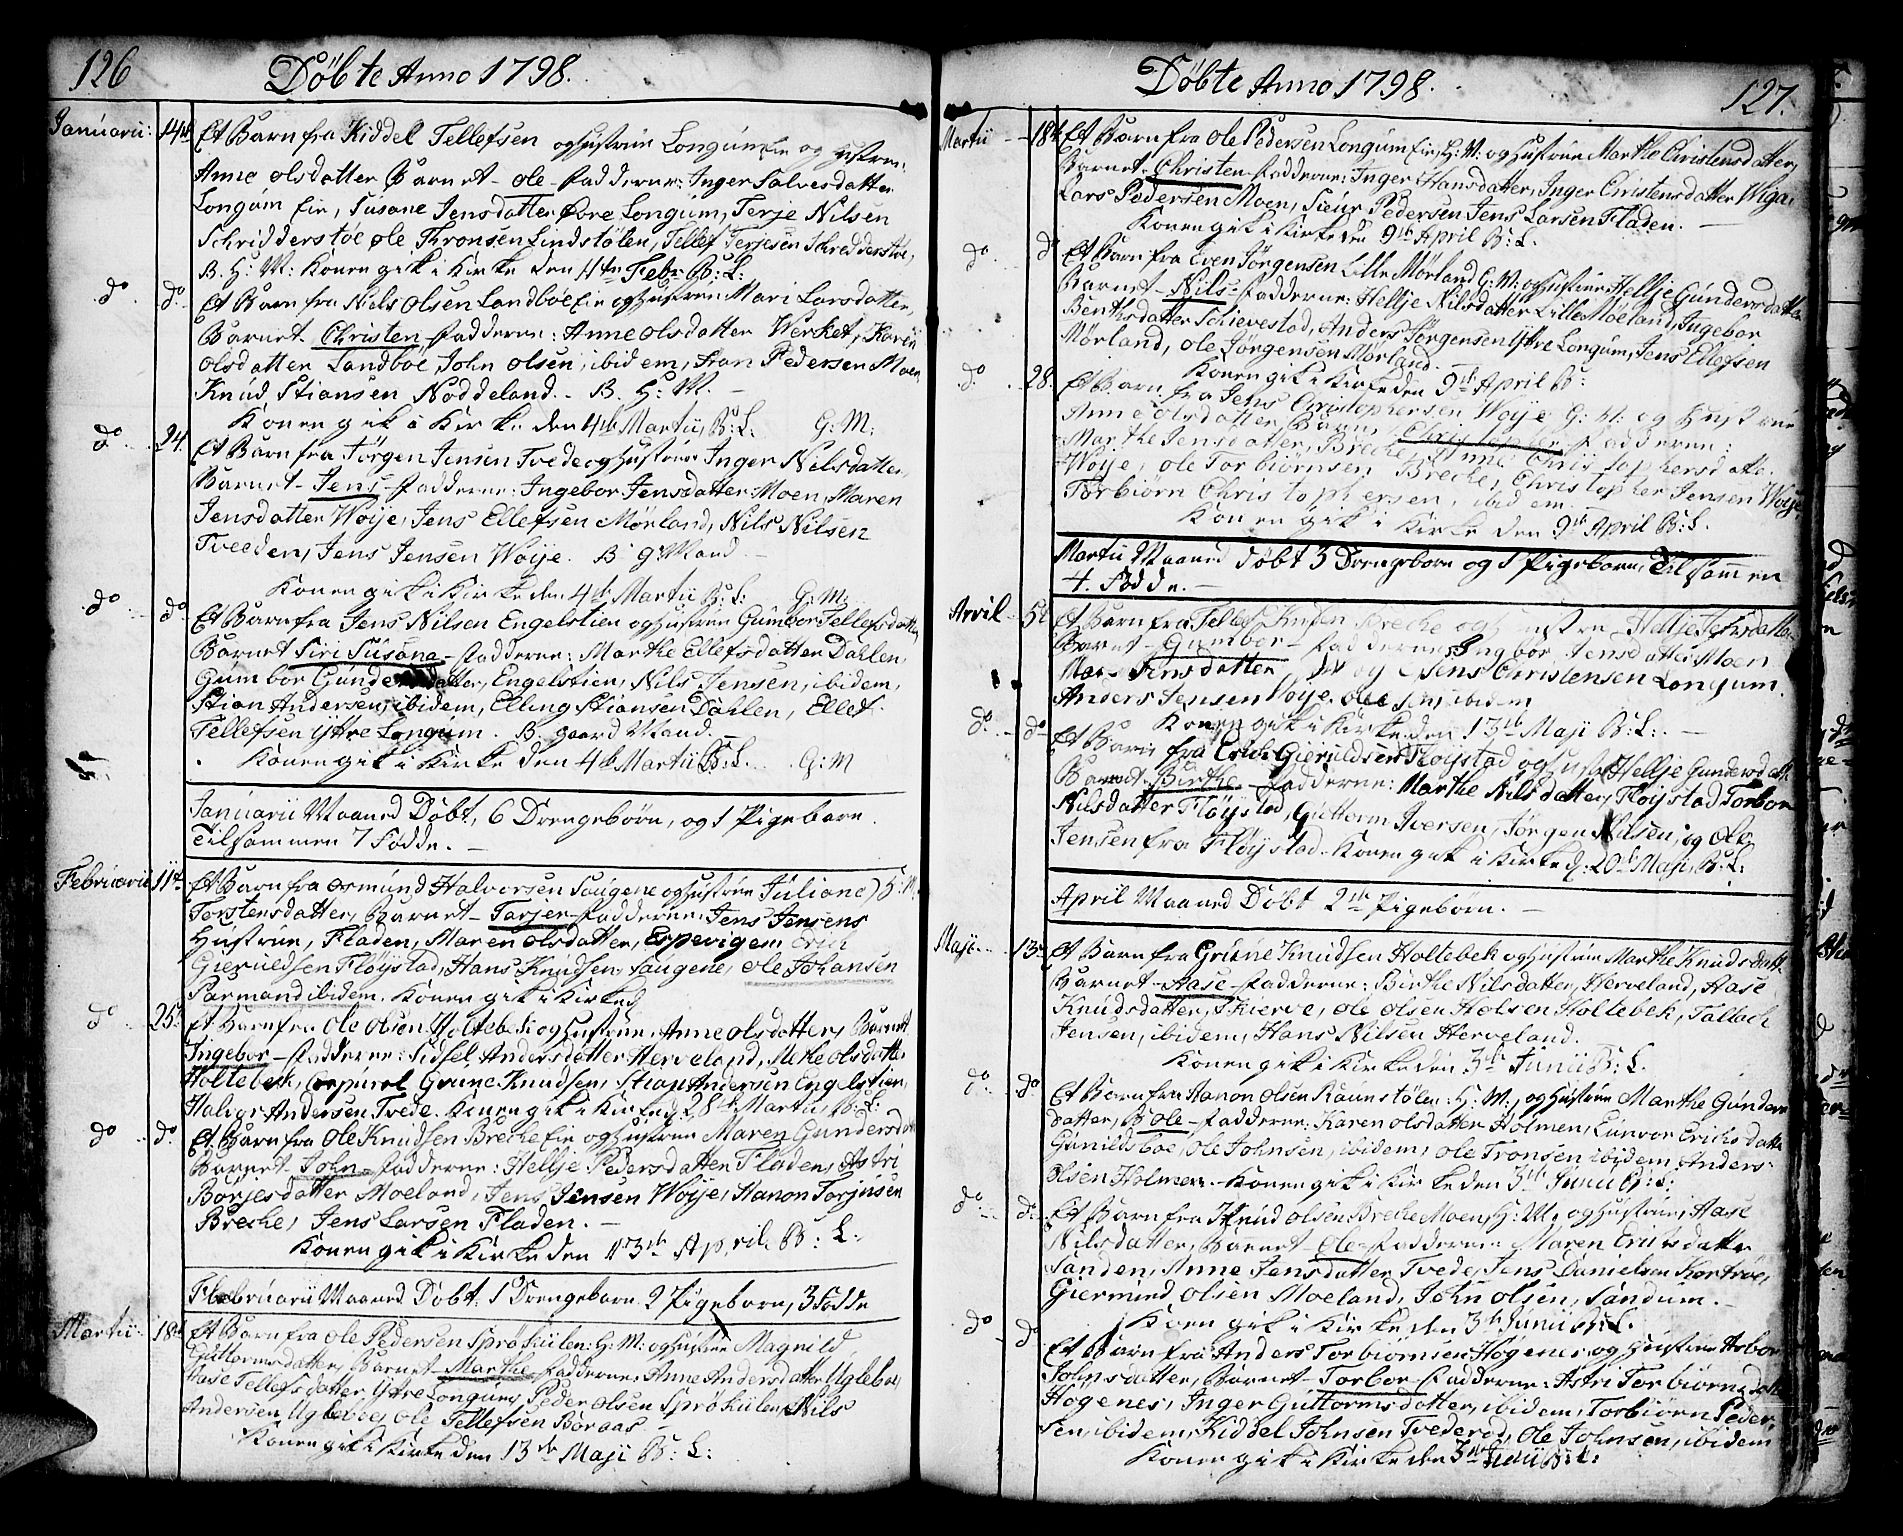 126 Döbte Anno 1798.
Januarii: 14de Et Barn fra Kiddel Tellefsen og Hustrüe Longüm Eie og Hustrüe
Anne Olsdatter Barnet - Ole - Fadderne: Inger Salvesdatter
Longüm Eie, Susane Jensdatter Övre Longüm, Terje Nilsen
Schridderstöe Ole Thronsen Lindstölen, Tellef Terjesen Schredderstöe,
B. H: M: Konen gik i Kirke den 4de Febr. B: L:
do do Et Barn fra Niels Olsen Landböe Eie og Hustrüe Mari Larsdatter,
Barnet - Christen, Fadderne: Anne Olsdatter Werket, Karen
Olsdatter Landböe John Olsen, ibidem, Han Pedersen Moen
Knüd Stiansen Nöddeland. B. H: M. -
Konen gik i Kirke den 4de Martii, B: L: G: M:
do 24. Et Barn fra Jörgen Jensen Tvede og Hustrüe Inger Nilsdatter,
Barnet - Jens - Fadderne: Ingebor Jensdatter Moen, Maren
Jensdatter Woije, Jens Ellefsen Mörland, Nils Nilsen
Tveeden, Jens Jensen Woije. B. G Mand. -
Konen gik i Kirke den 4de Martii B: L: G: M:
do do Et Barn fra Jens Nilsen Engelstien og Hustrüe Gümbor Tellefsdatter,
Barnet Siri Susana - Fadderne: Marthe Ellefsdatter Dahlen,
Gumbor Gündersdatter, Engelstien, Nils Jensen, ibidem,
Stian Andersen, ibidem, Elling Stiansen Dahlen, Ellef
Tellefsen Yttre Longüm. B. gaard Mand. -
Konen gik i Kirke den 4de Martii B: L. G: M
Januarii Maaned Döbt, 6 Drengebörn, og 1 Pigebarn.
Tilsammen 7 Födde. -
Februarii 11te Et Barn fra Osmünd Halvorsen Saügene og Hustrüe Juliane H: M.
Torstensdatter, Barnet - Tarjer - Fadderne: Jens Jensens
Hüstrüe, Fladen, Maren Olsdatter, Espevigem Erich
Gieruldsen Flöystad, Hans Knüdsen, Saügene, Ole Johansen
Parmand ibidem. Konen gik i Kirke d
do 25. Et Barn fra Ole Olsen Holtebek og Hustrüe Anne Olsdatter, Barnet
Ingebor - Fadderne: Sidsel Andersdatter Herveland, Mette Olsdatter
Holtebek, Corpüral Grüne Knüdsen, Stian Andersen Engelstien,
Halvor Andersen Tvede. Konen gik i Kirke d. 28de Martii, B: L:
do do Et Barn fra Ole Knüdsen Brecke Eie og Hustrüe Maren Gündersdatter
Barnet - John - Fadderne: Hellje Pedersdatter Fladen, Astri
Börjesdatter Moeland, Jens Jensen Woije, Hanon Torjusen
Brecke, Jens Larsen Fladen. -
Konen gik i Kirke den 13de April B: L:
Februarii Maaned Döbt: 1 Drengebarn 2 Pigebörn, 3 Födde
Martii 18de Et Barn fra Ole Pedersen Spröküilen: H: M: og Hustrüe Magnild
Guttormsdatter, Barnet - Marthe - Fadderne: Anne Andersdatter Ugleboe,
Aase Tellefsdatter, Yttre Longüm, Peder Olsen Spröküilen, Nils
Andersen, Ugleboe, Ole Tellefsen Börsaas -
Konen gik i Kirke den 13de Maji B: L:
Döbte Anno 1798. 127.
Martii - 18de Et Barn fra Ole Pedersen Longüm Eie, H: M: og Hustrüe Marthe Christensdatter,
Barnet - Christen - Fadderne: Inger Hansdatter, Inger Christensdatter
Lars Pedersen Moen, Sieur Pedersen Jens Larsen Fladen. -
Konen gik i Kirke den 9de April B: L.
do do Et Barn fra Even Jörgensen Lille Mörland G: M: og Hustrüe Hellje Gündersdatter
Barnet - Nils - Fadderne: Hellje Nilsdatter Lille Möeland, Ingebor
Benthsdatter Schievestad, Anders Jörgensen Yttre Longüm, Jens Ellefsen
Mörland, Ole Jörgensen Mörland.
Konen gik i Kirke den 9de April B:
do. 28. Et Barn fra Jens Christophersen Woije G: M: og Hustrüe
Anne Olsdatter, Barnet Christopher - Fadderne:
Marthe Jensdatter, Brecke, Anne Christophersdatter
Woije, Ole Torbiörnsen Brecke, Christopher Jensen Woije
Torbiörn Christophersen, ibidem.
Konen gik i Kirke den 9de April B: L.
Martii Maaned Döbt 3 Drengebörn og 1 Pigebarn, Tilsammen
4. Födde. -
April - Et Barn fra Tellef Brecke og Hustrüe Hellje
Barnet - Gumbor - Fadderne: Ingbor Jensdatter Moen
Jensdatter, og Jens Christensen Longum.
Anders Jensen Woije, ibidem
Konen gik i Kirke den 13de Maji B: L: -
do do Et Barn fra Erich Gieruldsen Flöystad og Hellje Gündersdatter
Barnet - Birthe - Fadderne: Marthe Nilsdatter, Flöystad Torbor
Nilsdatter Flöystad, Güttorm Iversen, Jörgen Nilsen, og Ole
Jensen fra Flöystad. Konen gik i Kirke d: 20de Maji, B: L:
April Maaned Döbt 2de Pigebörn. -
Maji - 13de Et Barn fra Grünne Knüdsen Holtebek og Hustrüe Marthe Knüdsdatter
Barnet - Aase - Fadderne: Birthe Nilsdatter, Herveland, Aase
Knüdsdatter, Skierve, Ole Olsen Holtebek, Tallach
Jensen, ibidem, Hans Nilsen Herveland.
Konen gik i Kirke den 3de Junii B: L.
do. do Et Barn fra Hanon Olsen Raunstölen: H: M:, og Hustrüe Marthe Günders
datter, B Ole - Fadderne: Karen Olsdatter Holmen, Gunvor Erichsdatter
Güníldsboe, Ole Johnsen, ibidem, Ole Tronsen ibidem, Anders
Olsen Holmen - Konen gik i Kirke den 3de Junii B: L:
do. do. Et Barn fra Knüd Olsen Brecke Moen, H: M, og Hustrüe, Aase
Nilsdatter, Barnet - Ole - Fadderne: Maren Erichsdatter
Sanden, Anne Jensdatter Tvede, Jens Danielsen Kortröe,
Giermünd Olsen Moeland, John Olsen, Sandum. -
Konen gik i Kirke den 3de Junii B: L.
do do Et Barn fra Anders Torbiörnsen Högenes og Hüstrüe Torbor
Johnsdatter, Barnet - Torbor - Fadderne: Astri Torbiörnsdatter
Högenes, Inger Güttormsdatter, ibidem, Torbiörn Peder
sen, ibidem, Kiddel Johnsen Tvedered, Ole Johnsen, ibidem
Konen gik i Kirke den 3de Junii B: L: